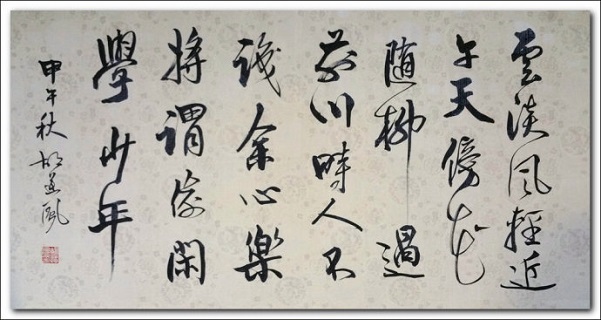 雲淡風輕近
午天傍花
随柳過
前川時人不
識余心樂
將謂偷閑
學少年
甲午秋